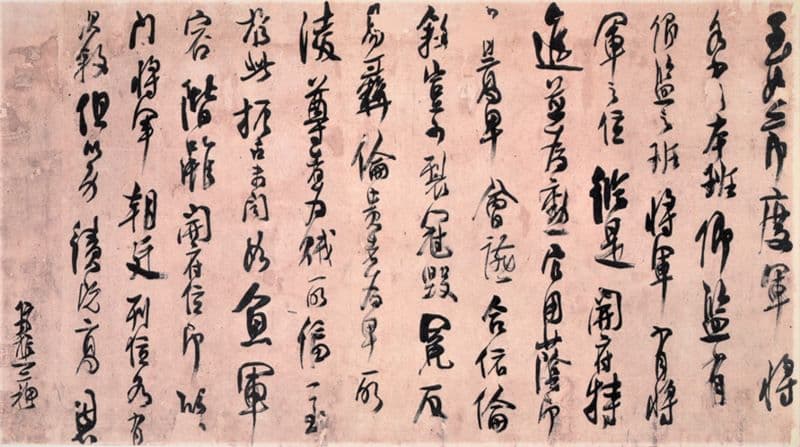 至如節度軍將
各有本班卿監有
卿監之班將軍有將
軍之位縱是開府特
進並為勳官用蔭即
有高卑會讌合依倫
敘豈可裂冠毀冕反
易彝倫貴者為卑所
凌尊者為賤所偪一至
於此振古未聞如魚軍
容階雖開府官即監
門將軍朝廷列位自有
次敘但以功績既高恩